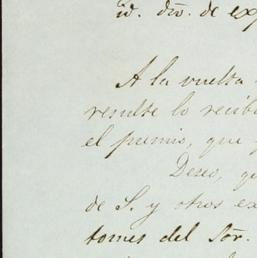 id. div. de ex
A la vuelta
resulte lo recib
el premio, que
Deseo, qu
de S. y otros ex
tomes del Sõr.